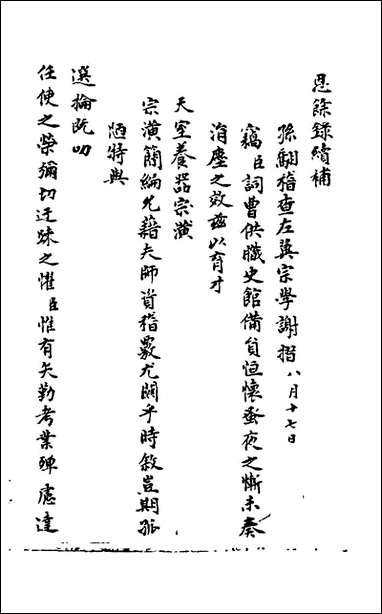 恩餘錄續補
孫翮稽查左翼宗學謝摺八月十七日
竊臣詞曹供職史館備員恒懷蚤夜之慚未奏
涓塵之效茲以育才
天室養器宗潢
宗潢簡綸允藉夫師資稽覈尤關乎時敘豈期孤
陋特與
選掄既叨
任使之榮彌切迂疎之懼臣惟有矢勤考業殫慮達